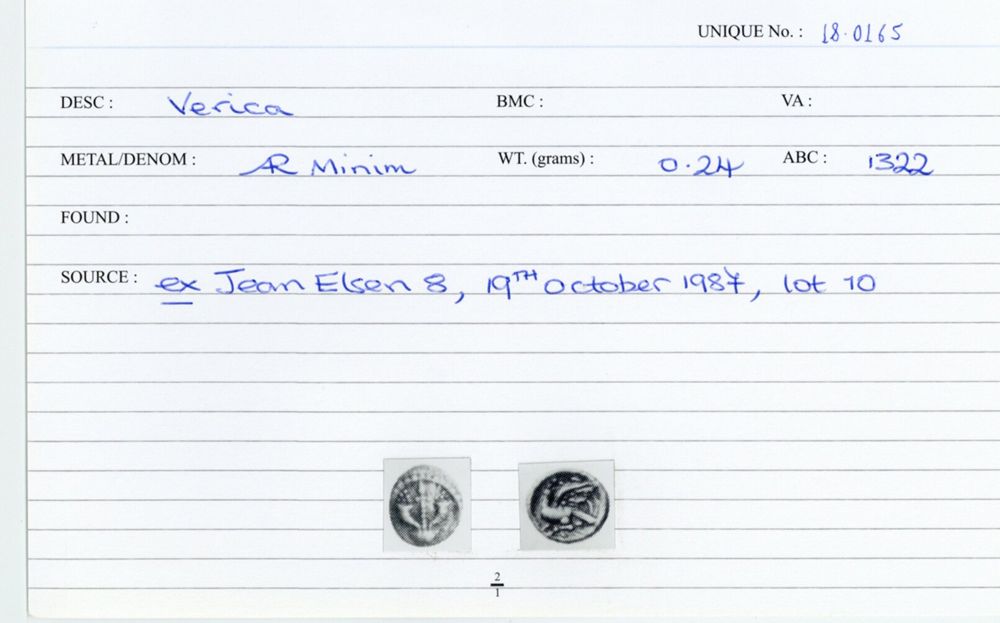 UNIQUE No. : 18.0165
DESC : Verica BMC : VA :
METAL/DENOM : AR Minim WT. (grams) : 0.24 ABC : 1322
FOUND :
SOURCE : ex Jean Elsen 8, 19TH October 1987, lot 10
2
1